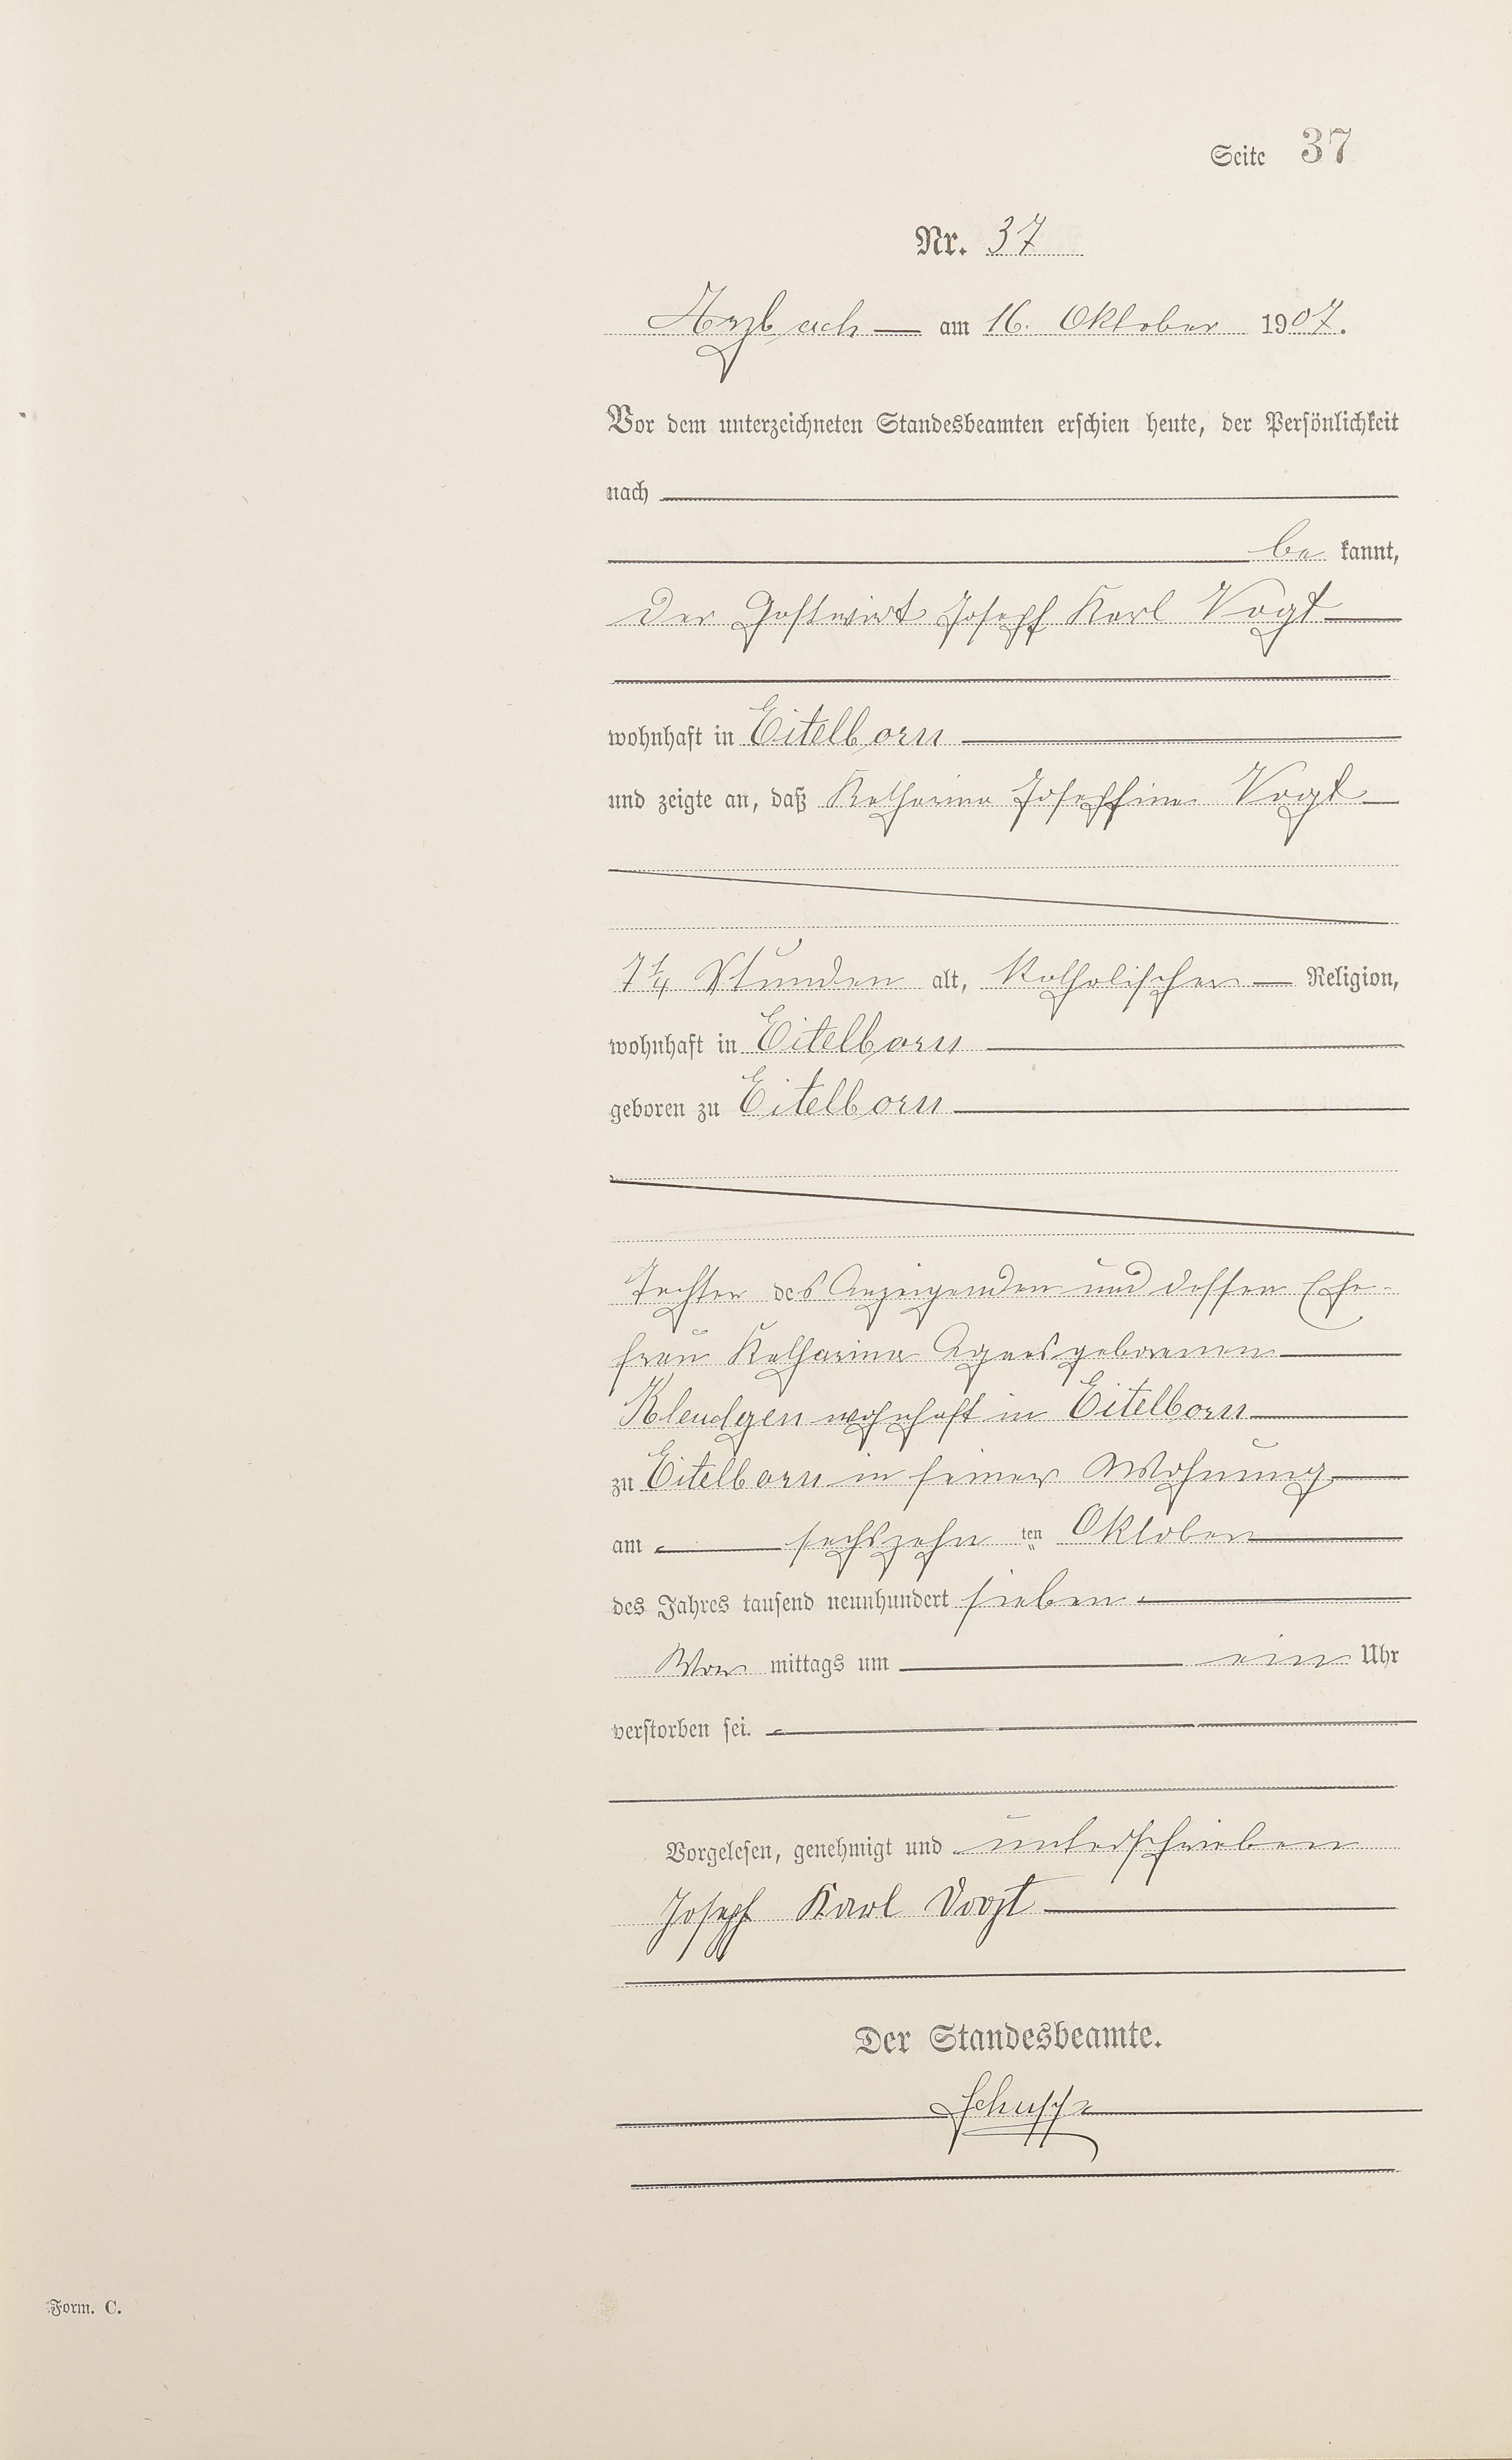 Seite 37
Nr. 37
Arzbach am 16. Oktober 1907.
Vor dem unterzeichneten Standesbeamten erschien heute, der Persönlichkeit
nach
be kannt,
der Gastwirt Joseph Karl Vogt
wohnhaft in Eitelborn
und zeigte an, daß Katharina Josephina Vogt
7 1/4 Stunden alt, katholischer Religion,
wohnhaft in Eitelborn
geboren zu Eitelborn
Tochter des Anzeigenden und dessen Ehe-
frau Katharina Agnes geborenen
Kleudgen wohnhaft in Eitelborn
zu Eitelborn in seiner Wohnung
am sechszehn ten Oktober
des Jahres tausend neunhundert sieben
Vor mittags um ein Uhr
verstorben sei.
Vorgelesen, genehmigt und unterschrieben
Joseph Karl Vogt
Der Standesbeamte.
Schupp
Form. C.